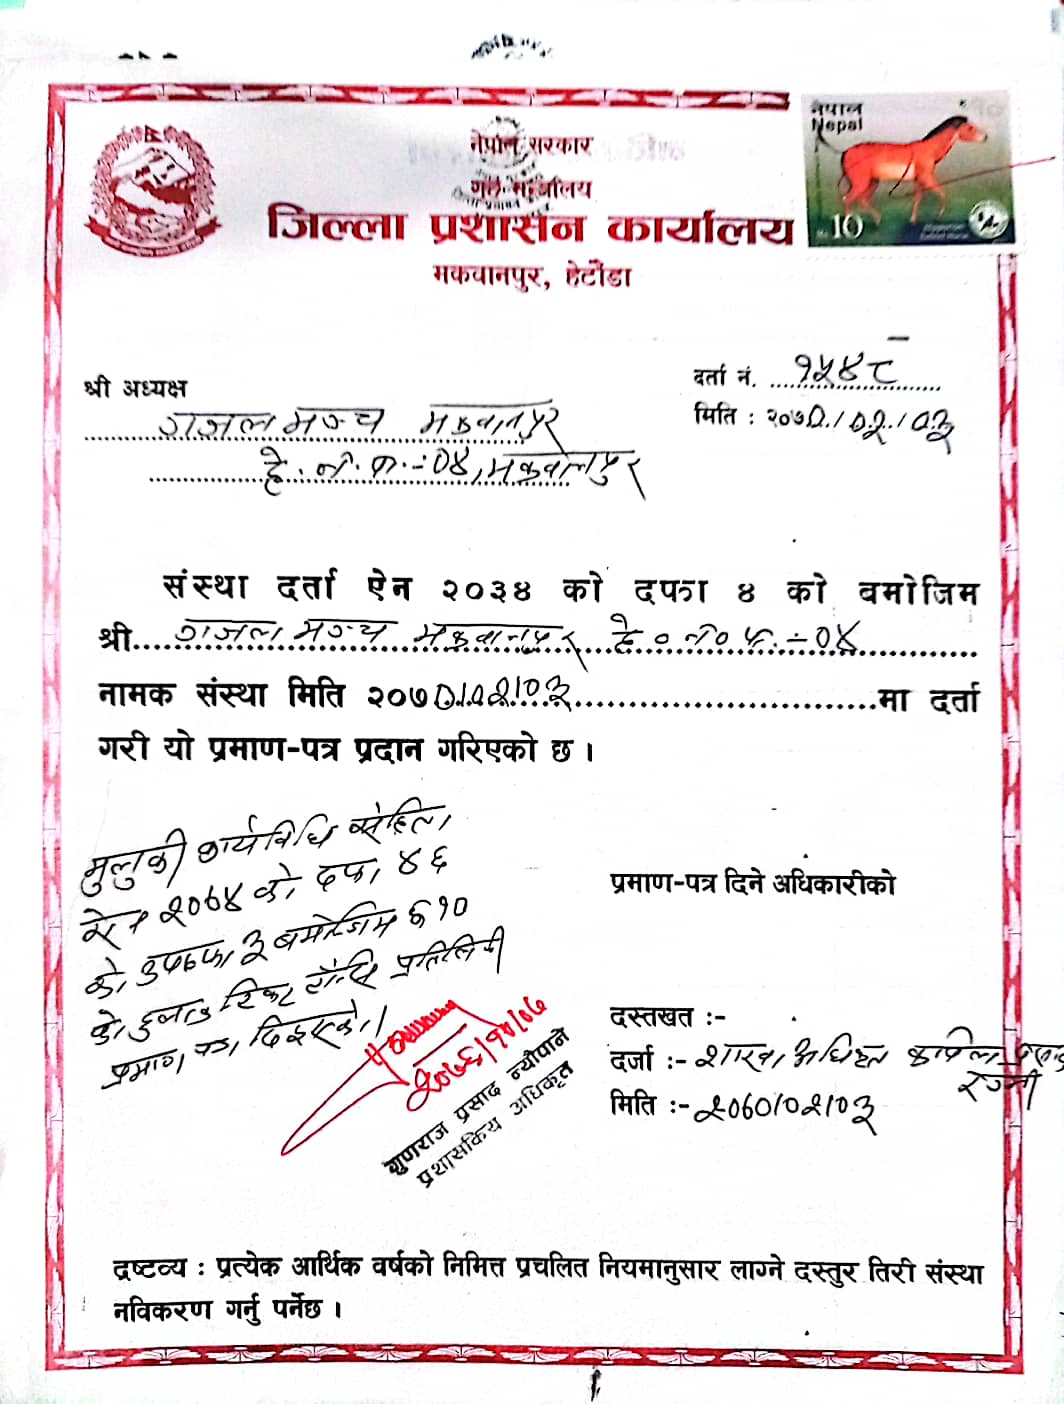 नेपाल
Nepal
10
नेपाल सरकार
गृह मन्त्रालय
जिल्ला प्रशासन कार्यालय
मकवानपुर, हेटौंडा
दर्ता नं. १५४८
मिति : २०७०/०२/०३
श्री अध्यक्ष
गजल मञ्च मकवानपुर
हे.न.पा.-०४, मकवानपुर
संस्था दर्ता ऐन २०३४ को दफा ४ को बमोजिम
श्री गजल मञ्च मकवानपुर हे०न०पा.-०४
नामक संस्था मिति २०७०/०२/०३ मा दर्ता
गरी यो प्रमाण-पत्र प्रदान गरिएको छ ।
मुलुकी कार्यविधि संहिता
ऐन २०७४ को दफा ४६
को उपदफा ३ बमोजिम रु १०
को हुलाक टिकट टाँसि प्रतिलिपी
प्रमाण पत्र दिइएको ।
२०७६/१०/०८
गुणराज प्रसाद न्यौपाने
प्रशासकिय अधिकृत
प्रमाण-पत्र दिने अधिकारीको
दस्तखत :-
दर्जा :- शाखा अधिकृत कपिल प्रसाद
मिति :- २०७०/०२/०३
द्रष्टव्य : प्रत्येक आर्थिक वर्षको निमित्त प्रचलित नियमानुसार लाग्ने दस्तुर तिरी संस्था
नविकरण गर्नु पर्नेछ ।